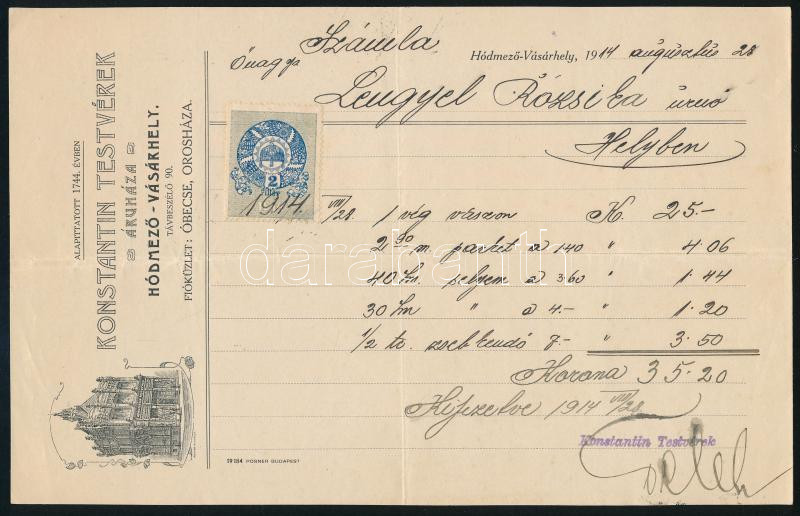 ALAPITTATOTT 1744. ÉVBEN
KONSTANTIN TESTVÉREK
ÁRUHÁZA
HÓDMEZŐ-VÁSÁRHELY.
TÁVBESZÉLŐ 90.
FIÓKÜZLET: ÓBECSE, OROSHÁZA.
Számla
Hódmező-Vásárhely, 1914 augusztus 28
Őnagys
Lengyel Rózsika úrnő
Helyben
2
1914.
VIII/28. 1 vég vászon K. 25.-
2 90 m. parket a 140 " 4 06
40 cm. selyem a 3.60 " 1.44
30 cm " a 4.- " 1.20
1/2 tc. zsebkendő 7.- " 3.50
Korona 35.20
Kifizetve 1914 VIII/28.
Konstantin Testvérek
19184 POSNER BUDAPEST
darabanth